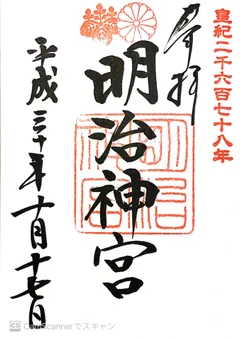 皇紀二千六百七十八年
奉拝
明治神宮
明治神宮
平成三十年十月十七日
CS CamScannerでスキャン